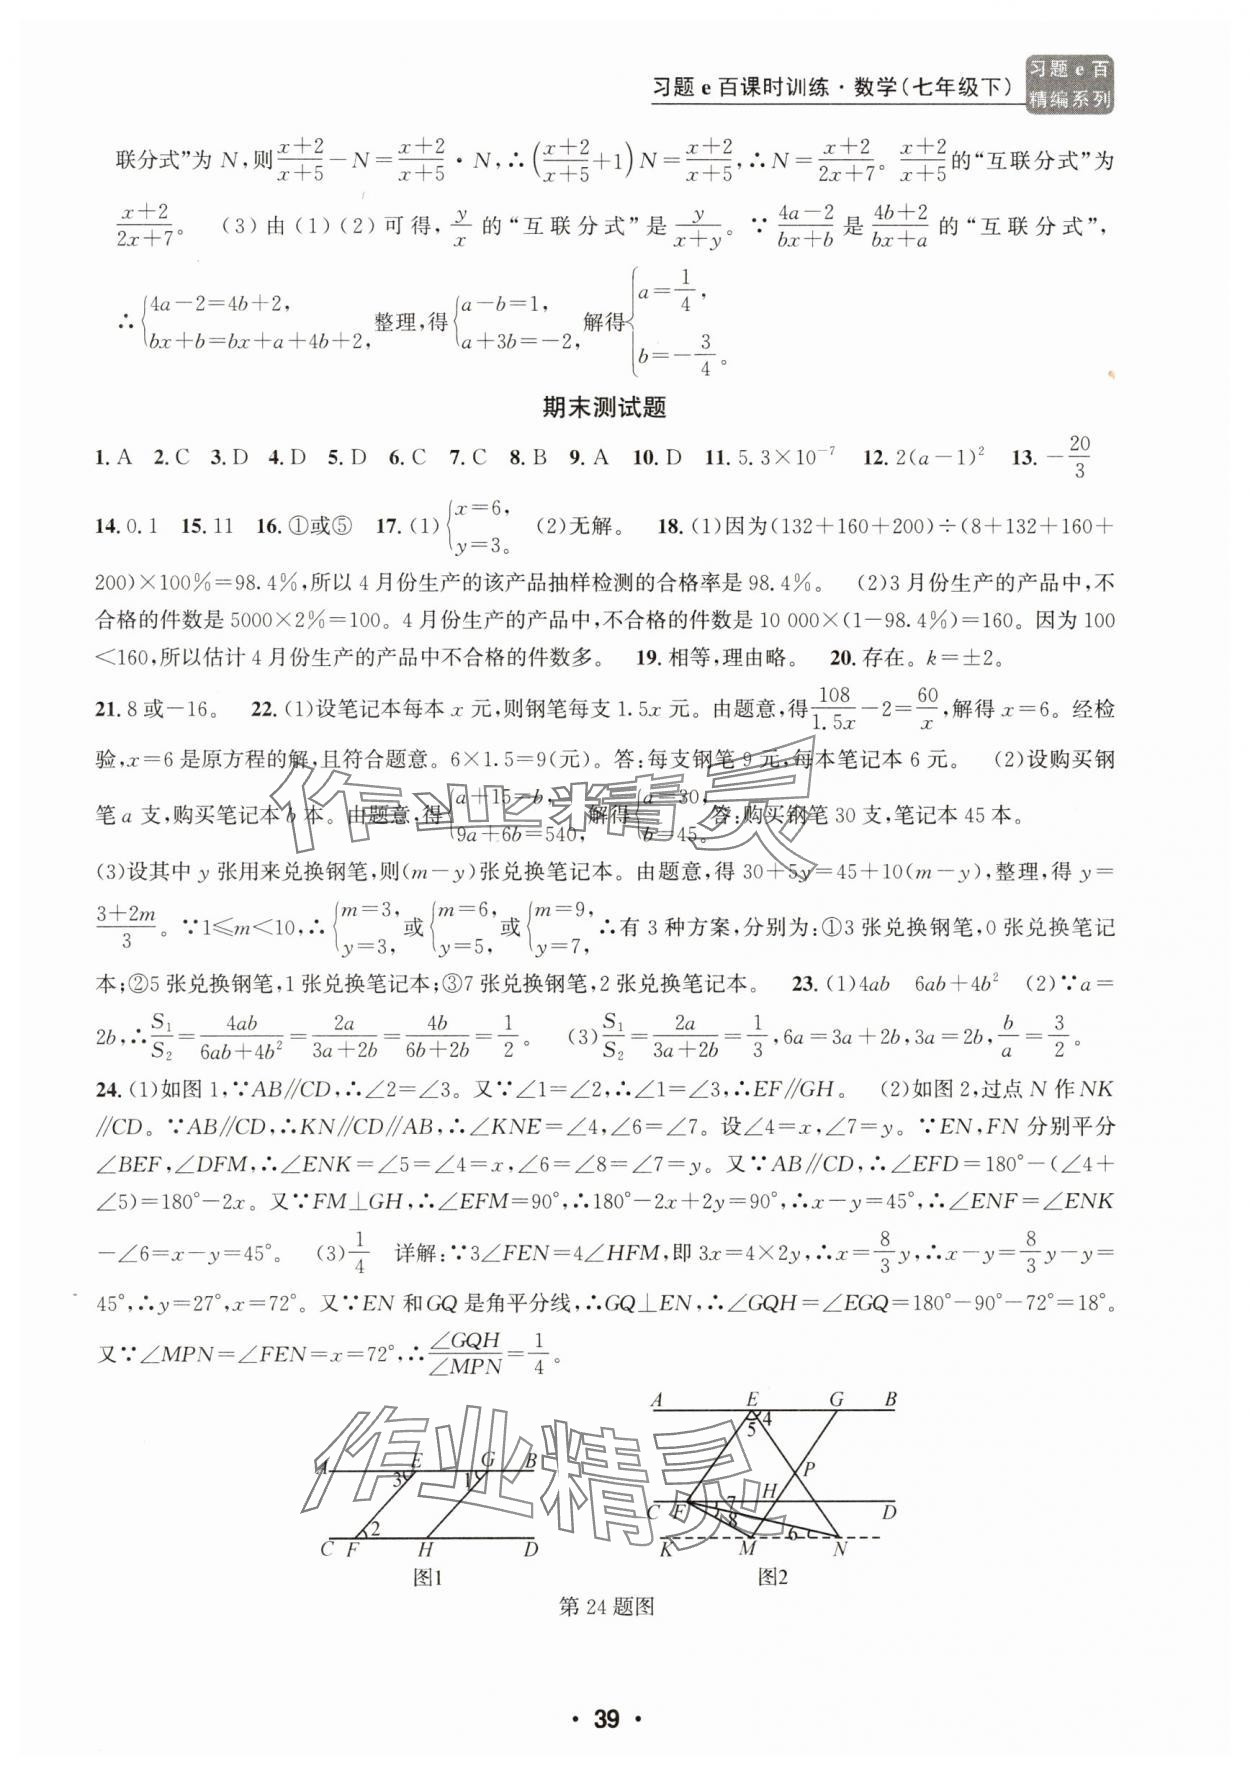 习题 e 百课时训练·数学(七年级下)
习题 e 百
精编系列
联分式”为 N,则$\frac{x+2}{x+5}$−N=$\frac{x+2}{x+5}$·N,∴($\frac{x+2}{x+5}$+1)N=$\frac{x+2}{x+5}$,∴N=$\frac{x+2}{2x+7}$。$\frac{x+2}{x+5}$的“互联分式”为
$\frac{x+2}{2x+7}$。 (3)由(1)(2)可得,$\frac{y}{x}$的“互联分式”是$\frac{y}{x+y}$。∵$\frac{4a-2}{bx+b}$是$\frac{4b+2}{bx+a}$的“互联分式”,
∴{4a−2=4b+2, bx+b=bx+a+4b+2, 整理,得{a−b=1, a+3b=−2, 解得{a=$\frac{1}{4}$, b=−$\frac{3}{4}$。
期末测试题
1. A 2. C 3. D 4. D 5. D 6. C 7. C 8. B 9. A 10. D 11. 5.3×10⁻⁷ 12. 2(a−1)² 13. −$\frac{20}{3}$
14. 0.1 15. 11 16. ①或⑤ 17. (1){x=6, y=3。 (2)无解。 18. (1)因为(132+160+200)÷(8+132+160+
200)×100%=98.4%,所以 4 月份生产的该产品抽样检测的合格率是 98.4%。 (2)3 月份生产的产品中,不
合格的件数是 5000×2%=100。4 月份生产的产品中,不合格的件数是 10 000×(1−98.4%)=160。因为 100
<160,所以估计 4 月份生产的产品中不合格的件数多。 19. 相等,理由略。 20. 存在。k=±2。
21. 8 或−16。 22. (1)设笔记本每本 x 元,则钢笔每支 1.5x 元。由题意,得$\frac{108}{1.5x}$−2=$\frac{60}{x}$,解得 x=6。经检
验,x=6 是原方程的解,且符合题意。6×1.5=9(元)。答:每支钢笔 9 元,每本笔记本 6 元。 (2)设购买钢
笔 a 支,购买笔记本 b 本。由题意,得{a+15=b, 9a+6b=540, 解得{a=30, b=45。 答:购买钢笔 30 支,笔记本 45 本。
(3)设其中 y 张用来兑换钢笔,则(m−y)张兑换笔记本。由题意,得 30+5y=45+10(m−y),整理,得 y=
$\frac{3+2m}{3}$。∵1≤m<10,∴{m=3, y=3, 或{m=6, y=5, 或{m=9, y=7, ∴有 3 种方案,分别为:①3 张兑换钢笔,0 张兑换笔记
本;②5 张兑换钢笔,1 张兑换笔记本;③7 张兑换钢笔,2 张兑换笔记本。 23. (1)4ab 6ab+4b² (2)∵a=
2b,∴$\frac{S_1}{S_2}$=$\frac{4ab}{6ab+4b^2}$=$\frac{2a}{3a+2b}$=$\frac{4b}{6b+2b}$=$\frac{1}{2}$。 (3)$\frac{S_1}{S_2}$=$\frac{2a}{3a+2b}$=$\frac{1}{3}$,6a=3a+2b,3a=2b,$\frac{b}{a}$=$\frac{3}{2}$。
24. (1)如图 1,∵AB∥CD,∴∠2=∠3。又∵∠1=∠2,∴∠1=∠3,∴EF∥GH。 (2)如图 2,过点 N 作 NK
∥CD。∵AB∥CD,∴KN∥CD∥AB,∴∠KNE=∠4,∠6=∠7。设∠4=x,∠7=y。∵EN,FN 分别平分
∠BEF,∠DFM,∴∠ENK=∠5=∠4=x,∠6=∠8=∠7=y。又∵AB∥CD,∴∠EFD=180°−(∠4+
∠5)=180°−2x。又∵FM⊥GH,∴∠EFM=90°,∴180°−2x+2y=90°,∴x−y=45°,∴∠ENF=∠ENK
−∠6=x−y=45°。 (3)$\frac{1}{4}$ 详解:∵3∠FEN=4∠HFM,即 3x=4×2y,∴x=$\frac{8}{3}$y,∴x−y=$\frac{8}{3}$y−y=
45°,∴y=27°,x=72°。又∵EN 和GQ 是角平分线,∴GQ⊥EN,∴∠GQH=∠EGQ=180°−90°−72°=18°。
又∵∠MPN=∠FEN=x=72°,∴$\frac{∠GQH}{∠MPN}$=$\frac{1}{4}$。
A E G B
3 1
2
C F H D
图1
A E G B
5 4
P
C F 7 H D
8 6
K M N
图2
第 24 题图
作业精灵
作业精灵
· 39 ·